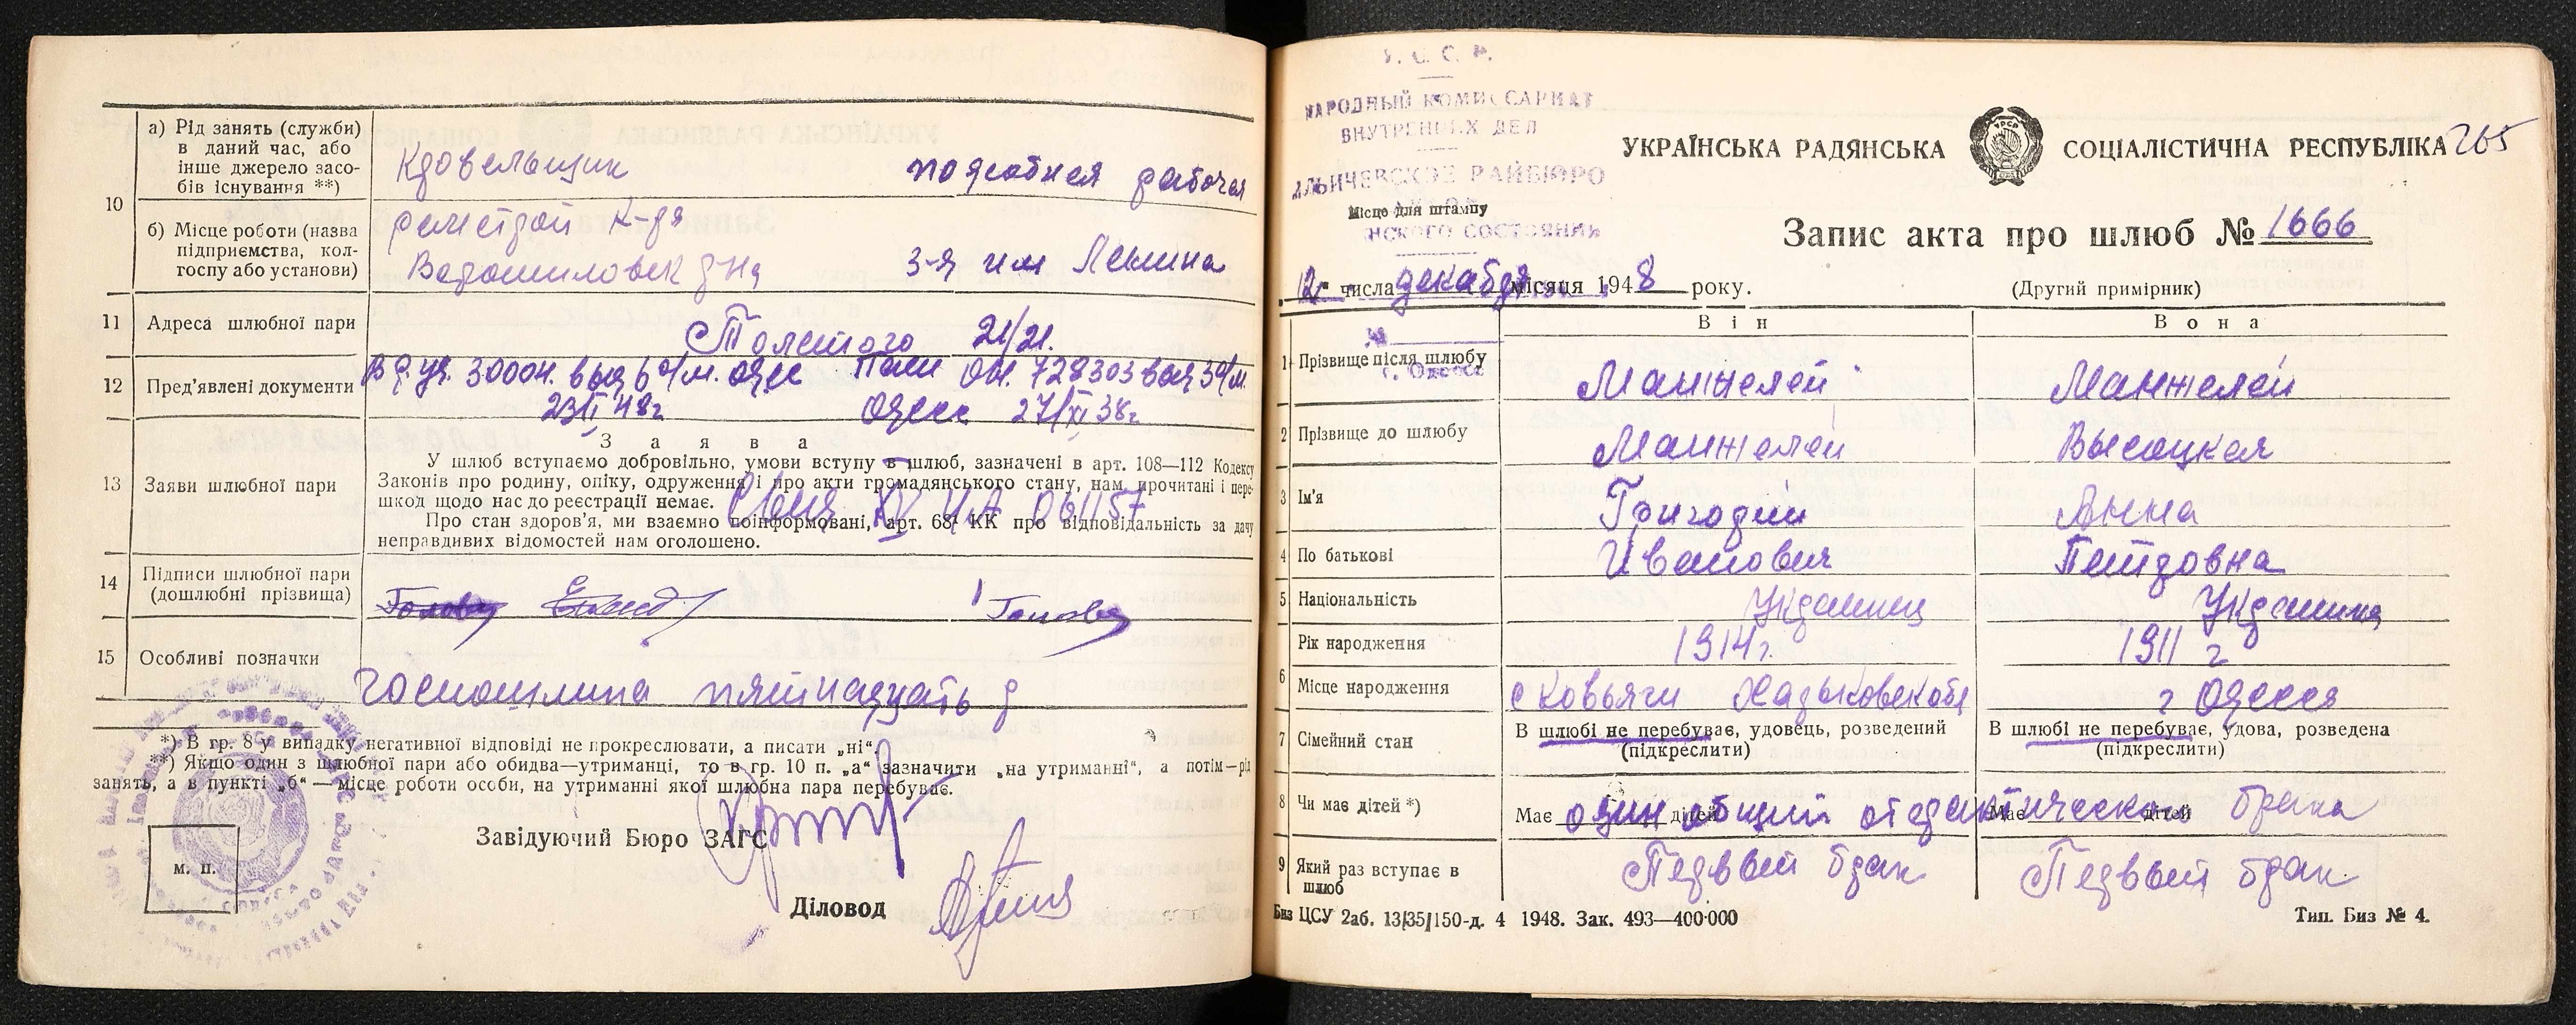 а) Рід занять (служби)
в даний час, або
інше джерело засо-
бів існування **)
Кровельщик
подсобная рабочая
10
б) Місце роботи (назва
підприємства, кол-
госпу або установи)
ремстрой к-ра
Ворошиловск р-на
3-я им Ленина
11
Адреса шлюбної пари
Толстого 21/21.
12
Пред'явлені документи
выд 6 о/м. Одес
23/II 48г
728303 выд 3 о/м.
Одесс 27/XI 38г
13
Заяви шлюбної пари
З а я в а
У шлюб вступаємо добровільно, умови вступу в шлюб, зазначені в арт. 108—112 Кодексу
Законів про родину, опіку, одруження і про акти громадянського стану, нам прочитані і пере-
шкод щодо нас до реєстрації немає.
Про стан здоров'я, ми взаємно поінформовані, арт. 68¹ КК про відповідальність за дачу
неправдивих відомостей нам оголошено.
061157
14
Підписи шлюбної пари
(дошлюбні прізвища)
15
Особливі позначки
госпошлина пятнадцать р
*) В гр. 8 у випадку негативної відповіді не прокреслювати, а писати „ні“.
**) Якщо один з шлюбної пари або обидва—утриманці, то в гр. 10 п. „а“ зазначити „на утриманні“, а потім—рід
занять, а в пункті „б“—місце роботи особи, на утриманні якої шлюбна пара перебуває.
Завідуючий Бюро ЗАГС
м. п.
Діловод
У. С. С. Р.
НАРОДНЫЙ КОМИССАРИАТ
ВНУТРЕННИХ ДЕЛ
ИЛЬИЧЕВСКОЕ РАЙБЮРО
Місце для штампу
СОСТОЯНИЯ
г. Одесса
УКРАЇНСЬКА РАДЯНСЬКА СОЦІАЛІСТИЧНА РЕСПУБЛІКА
265
Запис акта про шлюб № 1666
„12“ числа декабря місяця 1948 року.
(Другий примірник)
Він
Вона
1
Прізвище після шлюбу
Манжелей
Манжелей
2
Прізвище до шлюбу
Манжелей
Высоцкая
3
Ім'я
Григорий
Анна
4
По батькові
Иванович
Петровна
5
Національність
Украинец
Украинка
6
Рік народження
1914г.
1911 г
Місце народження
с Ковьяги Харьковск обл
г Одесса
7
Сімейний стан
В шлюбі не перебуває, удовець, розведений
(підкреслити)
В шлюбі не перебуває, удова, розведена
(підкреслити)
8
Чи має дітей *)
Має один общий от фактического брака дітей
Має дітей
9
Який раз вступає в
шлюб
Первый брак
Первый брак
Биз ЦСУ 2аб. 13/35/150-д. 4 1948. Зак. 493—400·000
Тип. Биз № 4.